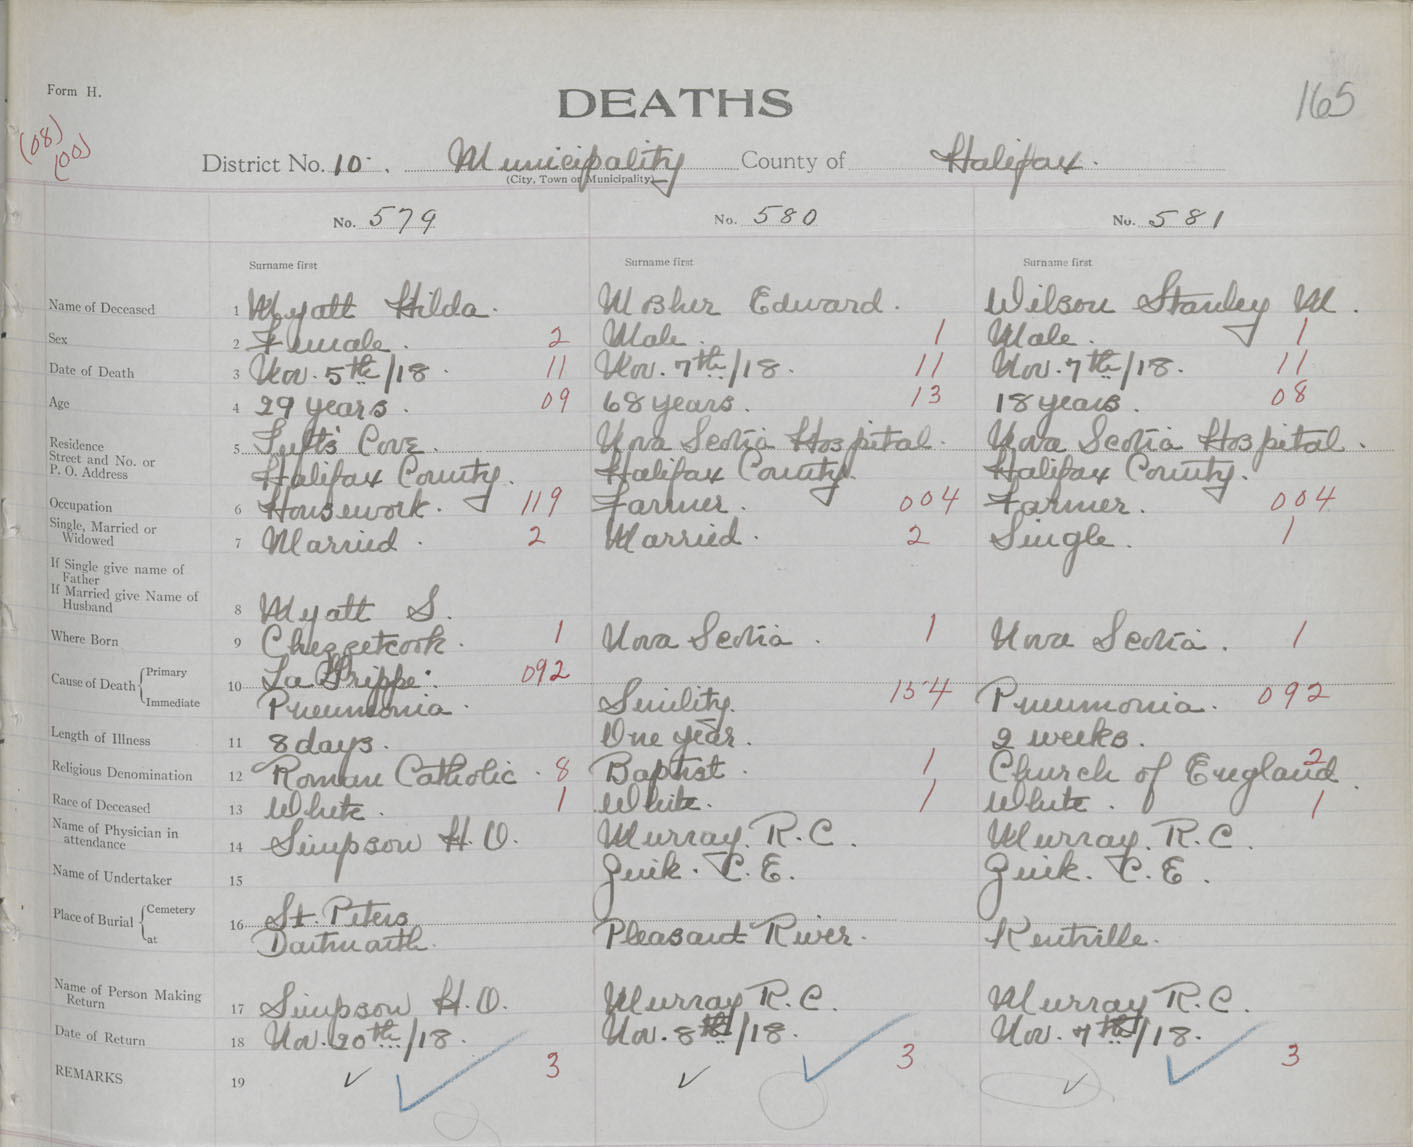 Form H.
DEATHS
165
(08)
(00)
District No. 10. Municipality County of Halifax.
(City, Town or Municipality)
No. 579 No. 580 No. 581
Surname first Surname first Surname first
Name of Deceased 1 Myatt Hilda. Mosher Edward. Wilson Stanley M.
Sex 2 Female. 2 Male. 1 Male. 1
Date of Death 3 Nov. 5th/18. 11 Nov. 7th/18. 11 Nov. 7th/18. 11
Age 4 29 years. 09 68 years. 13 18 years. 08
Residence
Street and No. or 5 Tufts Cove. Nova Scotia Hospital. Nova Scotia Hospital.
P. O. Address Halifax County. Halifax County. Halifax County.
Occupation 6 Housework. 119 Farmer. 004 Farmer. 004
Single, Married or
Widowed 7 Married. 2 Married. 2 Single. 1
If Single give name of
Father
If Married give Name of
Husband 8 Myatt S.
Where Born 9 Chezzetcook. 1 Nova Scotia. 1 Nova Scotia. 1
Cause of Death Primary 10 La Grippe. 092
Immediate Pneumonia. Senility. 154 Pneumonia. 092
Length of Illness 11 8 days. One year. 2 weeks.
Religious Denomination 12 Roman Catholic. 8 Baptist. 1 Church of England. 2
Race of Deceased 13 White. 1 White. 1 White. 1
Name of Physician in
attendance 14 Simpson H.O. Murray. R.C. Murray. R.C.
Name of Undertaker 15 Zink. C.E. Zink. C.E.
Place of Burial Cemetery 16 St. Peters
at Dartmouth. Pleasant River. Kentville.
Name of Person Making
Return 17 Simpson H.O. Murray R.C. Murray R.C.
Date of Return 18 Nov. 20th/18. Nov. 8th/18. Nov. 7th/18.
REMARKS 19 3 3 3